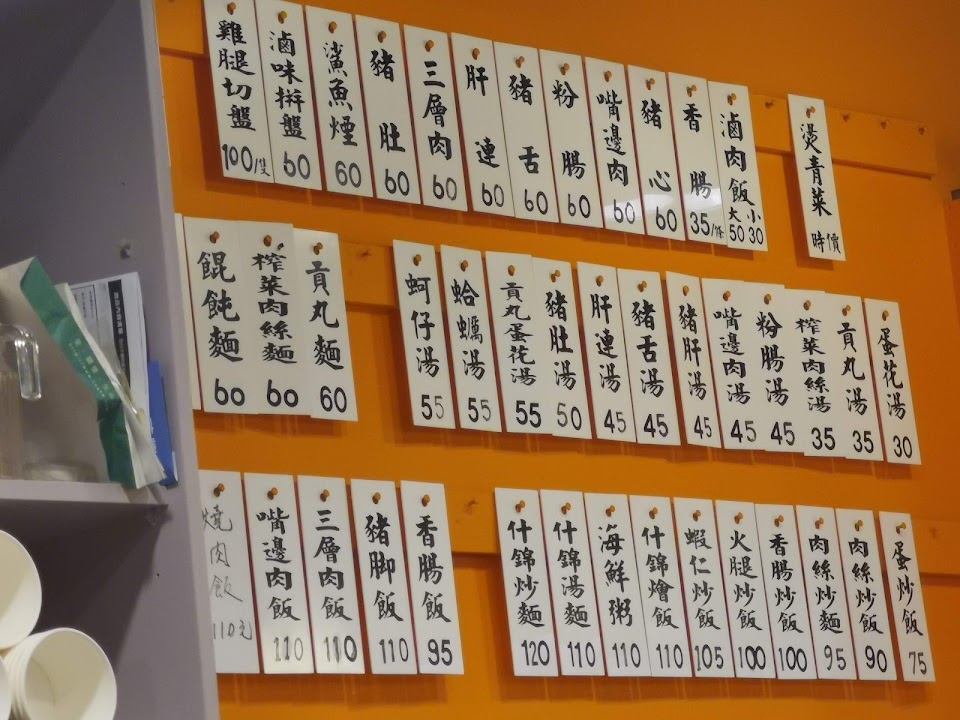 雞腿切盤 100/隻
滷味拼盤 60
鯊魚煙 60
豬肚 60
三層肉 60
肝連 60
豬舌 60
粉腸 60
嘴邊肉 60
豬心 60
香腸 35/條
滷肉飯 大50 小30
燙青菜 時價
餛飩麵 60
榨菜肉絲麵 60
貢丸麵 60
蚵仔湯 55
蛤蠣湯 55
貢丸蛋花湯 55
豬肚湯 50
肝連湯 45
豬舌湯 45
豬肝湯 45
嘴邊肉湯 45
粉腸湯 45
榨菜肉絲湯 35
貢丸湯 35
蛋花湯 30
燒肉飯 110元
嘴邊肉飯 110
三層肉飯 110
豬腳飯 110
香腸飯 95
什錦炒麵 120
什錦湯麵 110
海鮮粥 110
什錦燴飯 110
蝦仁炒飯 105
火腿炒飯 100
香腸炒飯 100
肉絲炒麵 95
肉絲炒飯 90
蛋炒飯 75